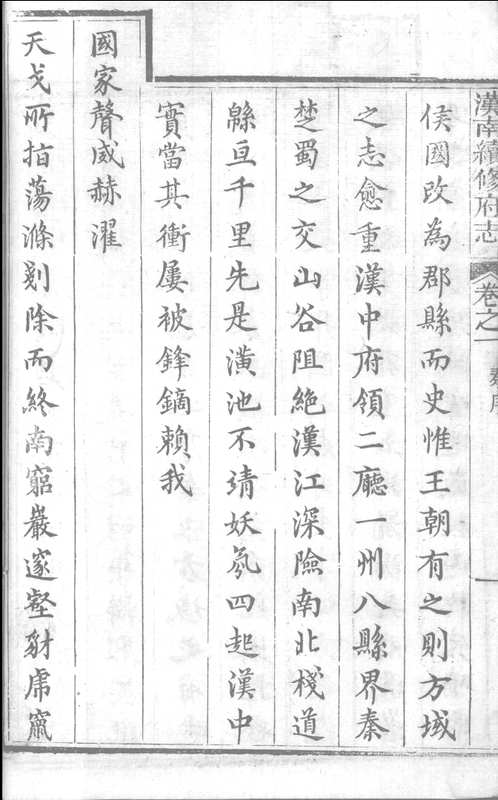 漢南續修府志 卷之一 序
侯國改為郡縣而史惟王朝有之則方域
之志愈重漢中府領二廳一州八縣界秦
楚蜀之交山谷阻絶漢江深險南北棧道
緜亘千里先是潢池不靖妖氛四起漢中
實當其衝屢被鋒鏑賴我
國家聲威赫濯
天戈所指蕩滌剗除而終南窮巖邃壑豺虎窟